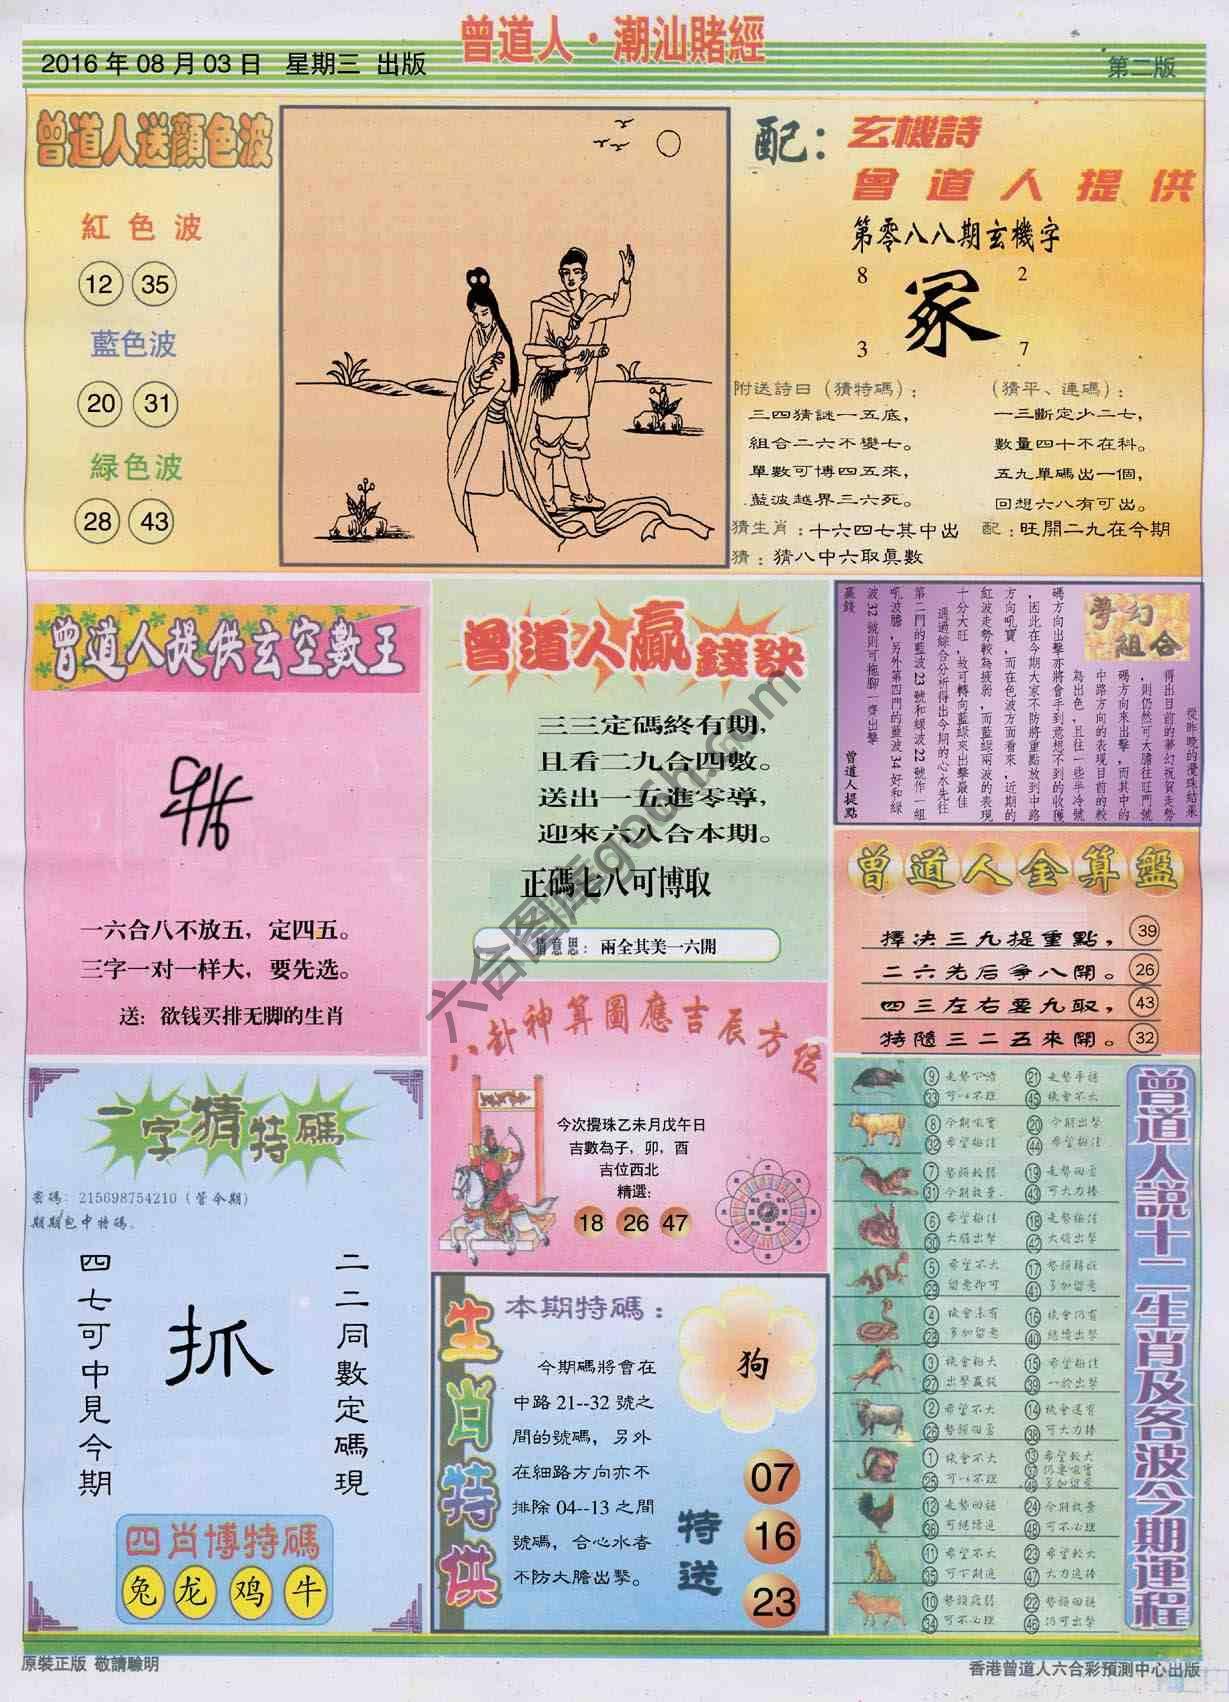 曾道人·潮汕賭經
2016年08月03日 星期三 出版
第二版
曾道人送顏色波
紅色波
12 35
藍色波
20 31
綠色波
28 43
配：玄機詩
曾道人提供
第零八八期玄機字
8 2
冢
3 7
附送詩曰（猜特碼）：
三四猜謎一五底，
組合二六不變七。
單數可博四五來，
藍波越界三六死。
（猜平、連碼）：
一三斷定少二七，
數量四十不在科。
五九單碼出一個，
回想六八有可出。
猜生肖：十六四七其中出
配：旺開二九在今期
猜：猜八中六取眞數
曾道人提供玄空數王
一六合八不放五，定四五。
三字一对一样大，要先选。
送：欲钱买排无脚的生肖
曾道人贏錢訣
三三定碼終有期，
且看二九合四數。
送出一五進零導，
迎來六八合本期。
正碼七八可博取
猜意思：兩全其美一六開
夢幻組合
從昨晚的攪珠結果
得出目前的夢幻祝賀走勢
，則仍然可大膽往旺門號
碼方向來出擊，而其中的
中路方向的表現目前的較
為出色，且往一些半冷號
碼方向出擊亦將會手到意想不到的收穫
，因此在今期大家不防將重點放到中路
方向吼寶，而在色波方面看來，近期的
紅波走勢較為疲弱，而藍綠兩波的表現
十分大旺，故可轉向藍綠來出擊最佳
通過綜合分析得出今期的心水先往
第二門的藍波23號和綠波22號作一組
吼波膽，另外第四門的藍波34好和綠
波32號則可拖腳一齊出擊
贏錢
曾道人提點
曾道人金算盤
擇決三九捉重點， 39
二六先后爭八開。 26
四三左右要九取， 43
特隨三二五來開。 32
八卦神算圖應吉辰方位
今次攪珠乙未月戊午日
吉數為子，卯，酉
吉位西北
精選：
18 26 47
一字猜特碼
密碼：215698754210（管今期）
期期包中特碼。
二二同數定碼現
抓
四七可中見今期
四肖博特碼
兔 龙 鸡 牛
生肖特供
本期特碼：
今期碼將會在
中路21--32號之
間的號碼，另外
在細路方向亦不
排除04--13之間
號碼，合心水者
不防大膽出擊。
狗
特送
07
16
23
曾道人說十二生肖及各波今期運程
原裝正版 敬請驗明
香港曾道人六合彩預測中心出版
六合图库gocn.com